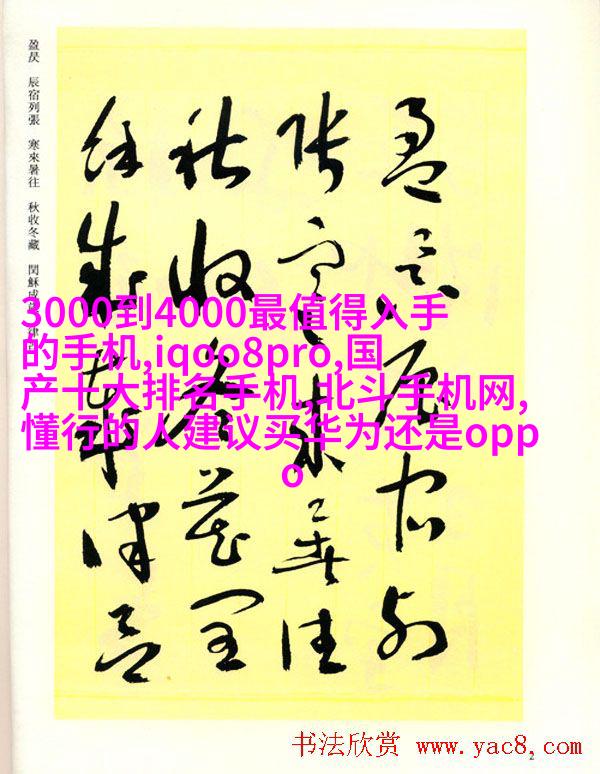 盈昃 辰宿列張 寒來暑往 秋收冬藏 閏穌成
盈昃辰宿列
張寒來暑往
秋收冬藏閏
餘成歲律呂
3000到4000最值得入手
的手机,iqoo8pro,国
产十大排名手机,北斗手机网,
懂行的人建议买华为还是opp
o
书法欣赏 www.yac8.com
2